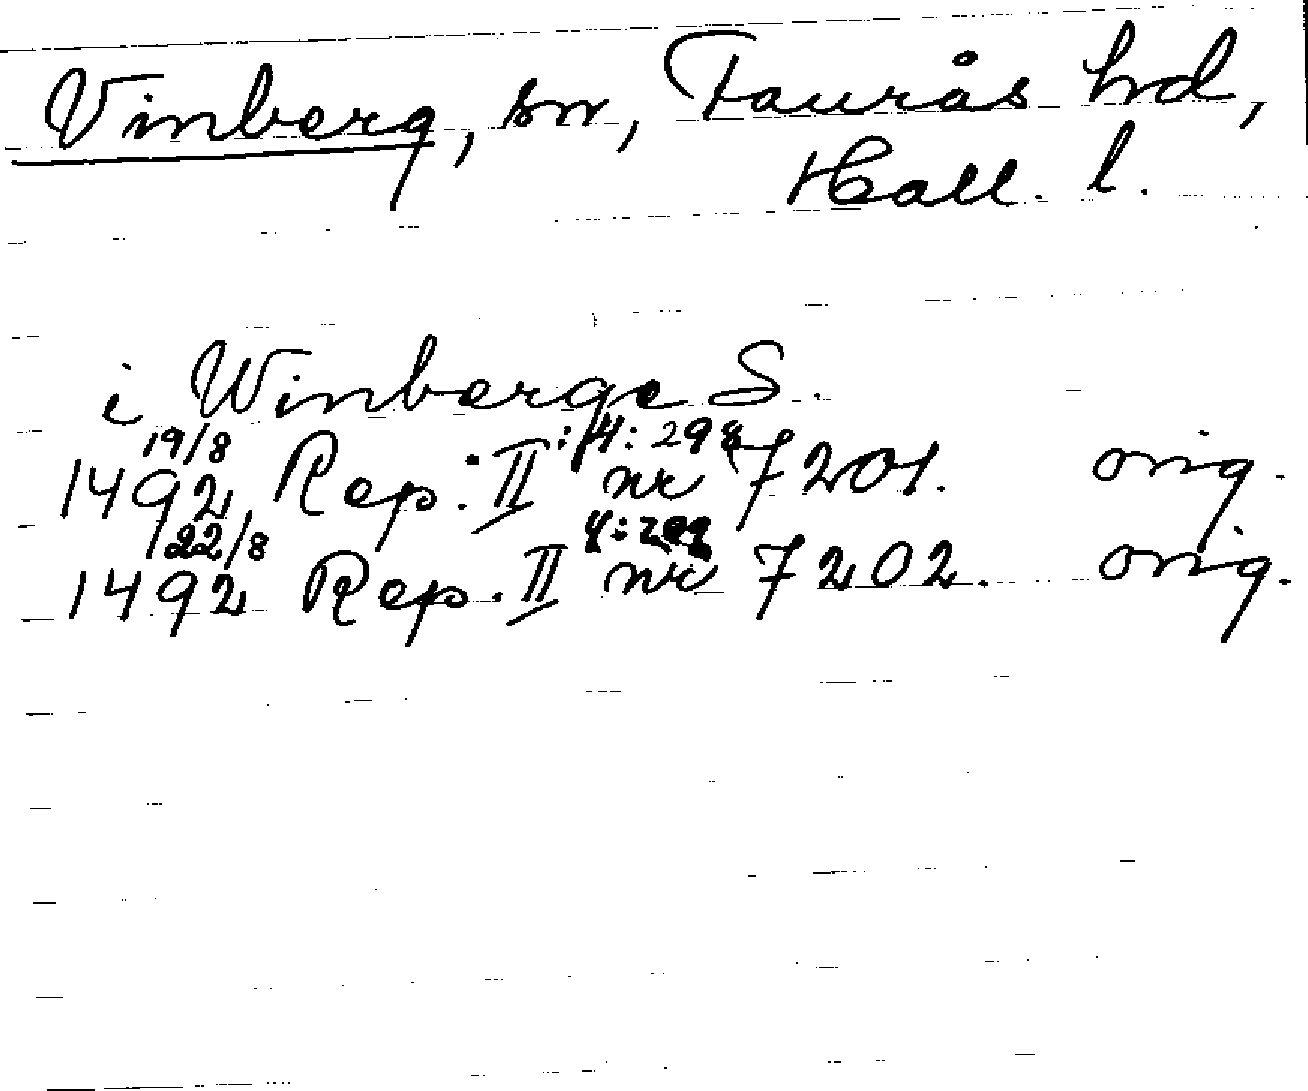 Vinberg, sn, Faurås hd,
Hall. l.
i Winberge S.
19/8 :4:298
1492 Rep. II nr 7201. orig.
22/8 4:299
1492 Rep. II nr 7202. orig.